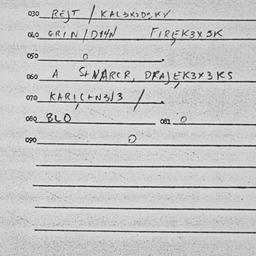 030 REJT / KAL3K3D2KY
040 GRIN / D14N FIREK3X3K
050 0
060 A S+NARCR, DRAJEK3X3K5
070 KARIC+N3/3 /
080 BLO 081 0
090 0